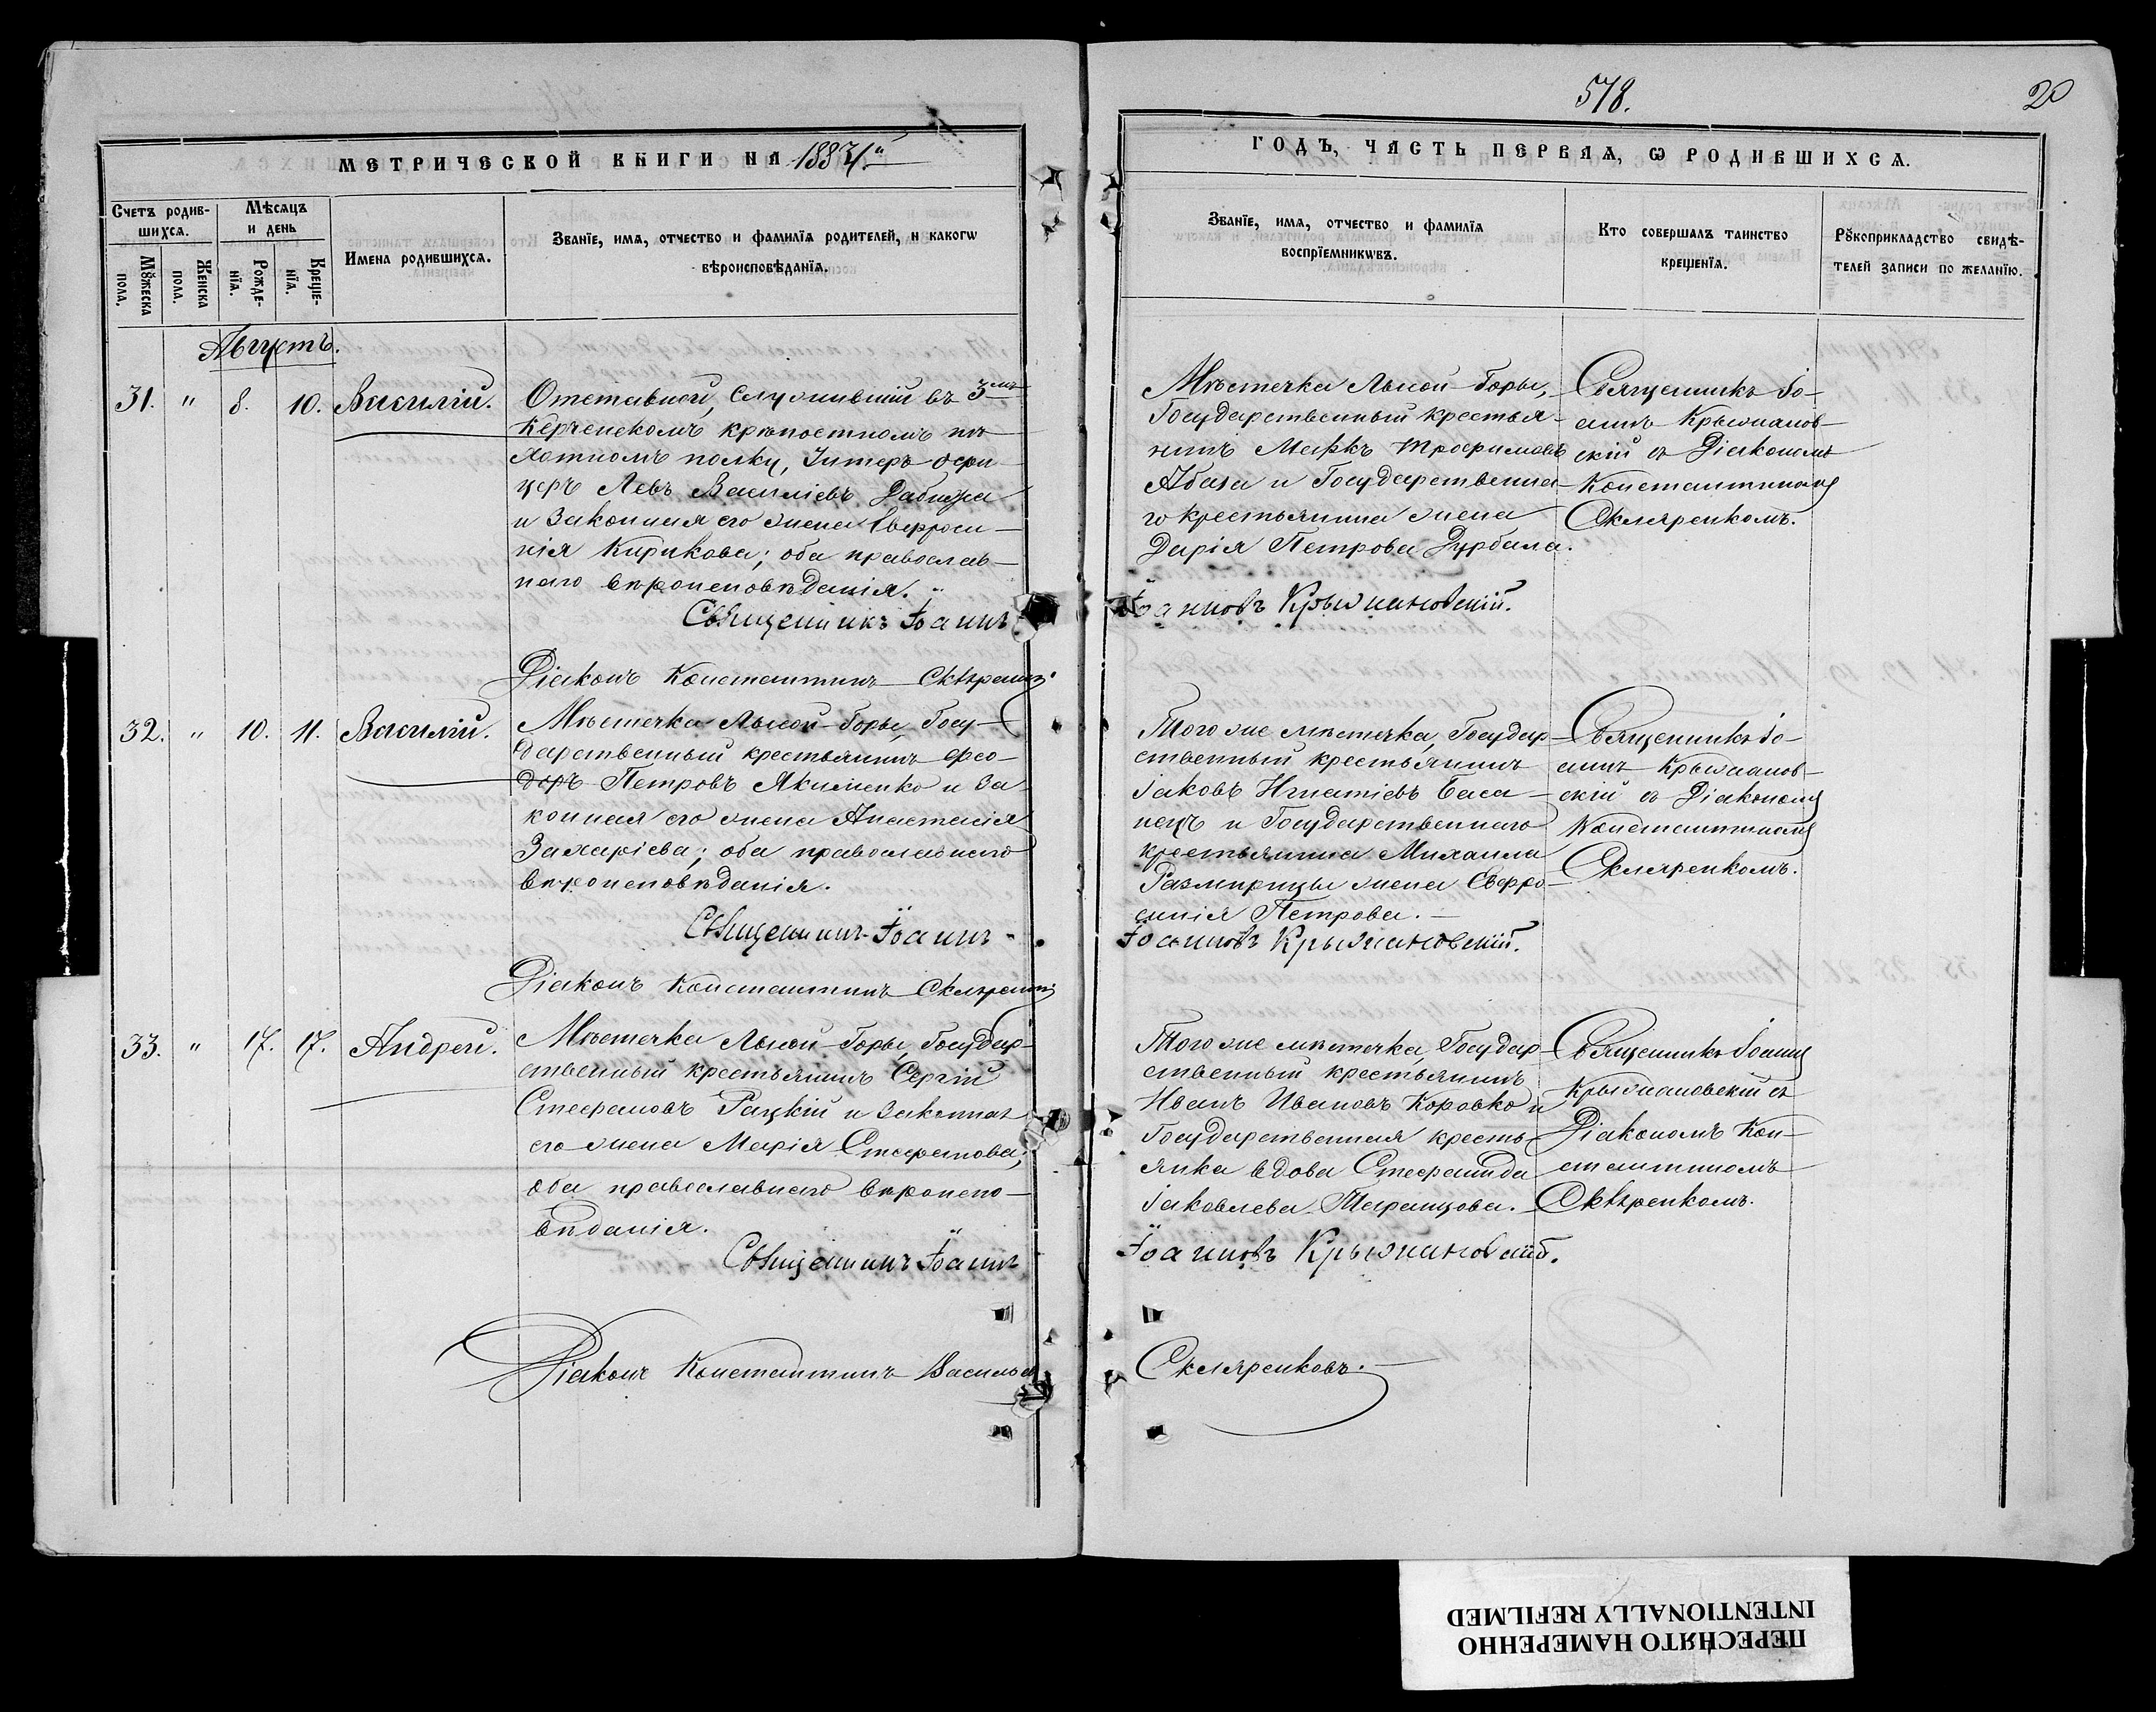 578.
20
МЕТРИЧЕСКОЙ КНИГИ НА 1883й
ГОДЪ, ЧАСТЬ ПЕРВАЯ, Ѡ РОДИВШИХСѦ.
Счетъ родив-
шихсѧ.
Мѣсѧцъ
и день
Мꙋжеска
пола.
Женска
пола.
Рожде-
нїѧ.
Креще-
нїѧ.
Имена родившихсѧ.
Званїе, имѧ, отчество и фамилїѧ родителей, и какогѡ
вѣроисповѣданїѧ.
Званїе, имѧ, отчество и фамилїѧ
воспрїемникѡвъ.
Кто совершалъ таинство
крещенїѧ.
Рꙋкоприкладство свидѣ-
телей записи по желанїю.
Августъ.
31. " 8. 10. Василій.
Отставной, служившій въ 3мъ
Керченскомъ крѣпостномъ пѣ-
хотномъ полку, Унтеръ-офи-
церъ Левъ Василіевъ Дабижа
и законная его жена Евфроси-
нія Кирикова; оба православ-
наго вѣроисповѣданія.
Священникъ Іоаннъ
Діаконъ Константинъ
Мѣстечка Лысой-Горы,
Государственный крестья-
нинъ Маркъ Трофимовъ
Абаза и Государственна-
го крестьянина жена
Дарія Петрова Дурбала.
Іоанновъ Крыжановскій.
Священникъ Іо-
аннъ Крыжанов-
скій съ Діакономъ
Константиномъ
Скляренкомъ.
32. " 10. 11. Василій.
Мѣстечка Лысой-Горы, Госу-
дарственный крестьянинъ Фео-
доръ Петровъ Якименко и за-
конная его жена Анастасія
Захаріева; оба православнаго
вѣроисповѣданія.
Священникъ Іоаннъ
Діаконъ Константинъ
Того же мѣстечка, Государ-
ственный крестьянинъ
Іаковъ Игнатіевъ Баса-
нецъ и Государственнаго
крестьянина Михаила
Размирицы жена Евфро-
синія Петрова.
Іоанновъ Крыжановскій.
Священникъ Іо-
аннъ Крыжанов-
скій съ Діакономъ
Константиномъ
Скляренкомъ.
33. " 17. 17. Андрей.
Мѣстечка Лысой-Горы, Государ-
ственный крестьянинъ Сергій
Стефановъ Рацкій и законная
его жена Марія Стефанова;
оба православнаго вѣроиспо-
вѣданія.
Священникъ Іоаннъ
Того же мѣстечка, Государ-
ственный крестьянинъ
Иванъ Ивановъ Коровко и
Государственная кресть-
янка вдова Стефанида
Іаковлева Таранцова.
Іоанновъ Крыжановскій.
Священникъ Іоаннъ
Крыжановскій съ
Діакономъ Кон-
стантиномъ
Скляренкомъ.
Діаконъ Константинъ Васильевъ
Скляренковъ.
ПЕРЕСНЯТО НАМЕРЕННО
INTENTIONALLY REFILMED